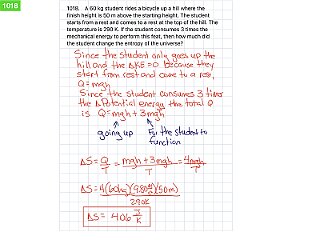 1018
1018. A 60 kg student rides a bicycle up a hill where the
finish height is 50 m above the starting height. The student
starts from a rest and comes to a rest at the top of the hill. The
temperature is 290 K. If the student consumes 3 times the
mechanical energy to perform this feat, then how much did
the student change the entropy of the universe?
Since the student only goes up the
hill and the ΔKE=0 because they
start from rest and come to a rest,
Q=mgh
Since the student consumes 3 times
the ΔPotential energy the total Q
is Q=mgh+3mgh
going up For the student to
function
ΔS=Q/T=mgh+3mgh/T=4mgh/T
ΔS=4(60kg)(9.80m/s²)(50m)/290K
ΔS= 406 J/K